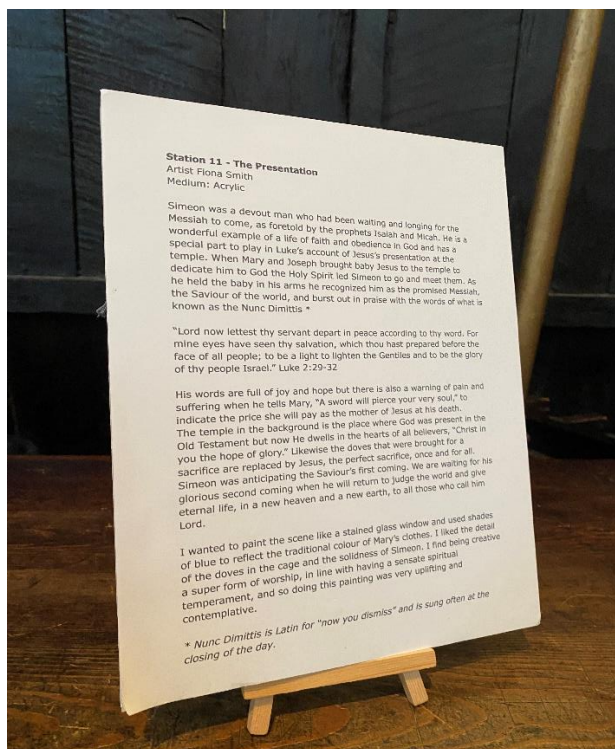 Station 11 - The Presentation
Artist Fiona Smith
Medium: Acrylic
Simeon was a devout man who had been waiting and longing for the
Messiah to come, as foretold by the prophets Isaiah and Micah. He is a
wonderful example of a life of faith and obedience in God and has a
special part to play in Luke's account of Jesus's presentation at the
temple. When Mary and Joseph brought baby Jesus to the temple to
dedicate him to God the Holy Spirit led Simeon to go and meet them. As
he held the baby in his arms he recognized him as the promised Messiah,
the Saviour of the world, and burst out in praise with the words of what is
known as the Nunc Dimittis *
"Lord now lettest thy servant depart in peace according to thy word. For
mine eyes have seen thy salvation, which thou hast prepared before the
face of all people; to be a light to lighten the Gentiles and to be the glory
of thy people Israel." Luke 2:29-32
His words are full of joy and hope but there is also a warning of pain and
suffering when he tells Mary, "A sword will pierce your very soul," to
indicate the price she will pay as the mother of Jesus at his death.
The temple in the background is the place where God was present in the
Old Testament but now He dwells in the hearts of all believers, "Christ in
you the hope of glory." Likewise the doves that were brought for a
sacrifice are replaced by Jesus, the perfect sacrifice, once and for all.
Simeon was anticipating the Saviour's first coming. We are waiting for his
glorious second coming when he will return to judge the world and give
eternal life, in a new heaven and a new earth, to all those who call him
Lord.
I wanted to paint the scene like a stained glass window and used shades
of blue to reflect the traditional colour of Mary's clothes. I liked the detail
of the doves in the cage and the solidness of Simeon. I find being creative
a super form of worship, in line with having a sensate spiritual
temperament, and so doing this painting was very uplifting and
contemplative.
* Nunc Dimittis is Latin for "now you dismiss" and is sung often at the
closing of the day.